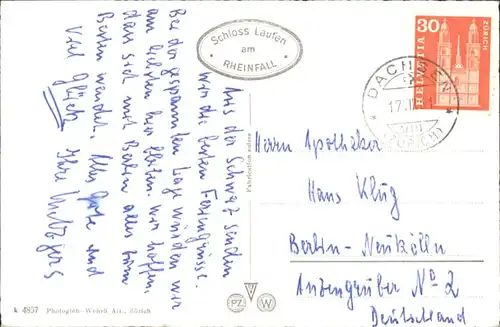 Schloss Laufen
am
RHEINFALL
Aus der Schweiz senden
wir die besten Feriengrüsse.
Bei der gespannten Lage würden wir
am liebsten hier bleiben. Wir hoffen,
dass sich mit Berlin alles zum
Besten wendet. Alles Gute und
viel Glück Ihre Metzgers
HELVETIA
30
ZÜRICH
DACHSEN
(ZÜRICH)
Herrn Apotheker
Hans Klug
Berlin-Neukölln
Anzengruber No 2
Deutschland
k 4857 Photoglob-Wehrli A.G., Zürich
PZ W